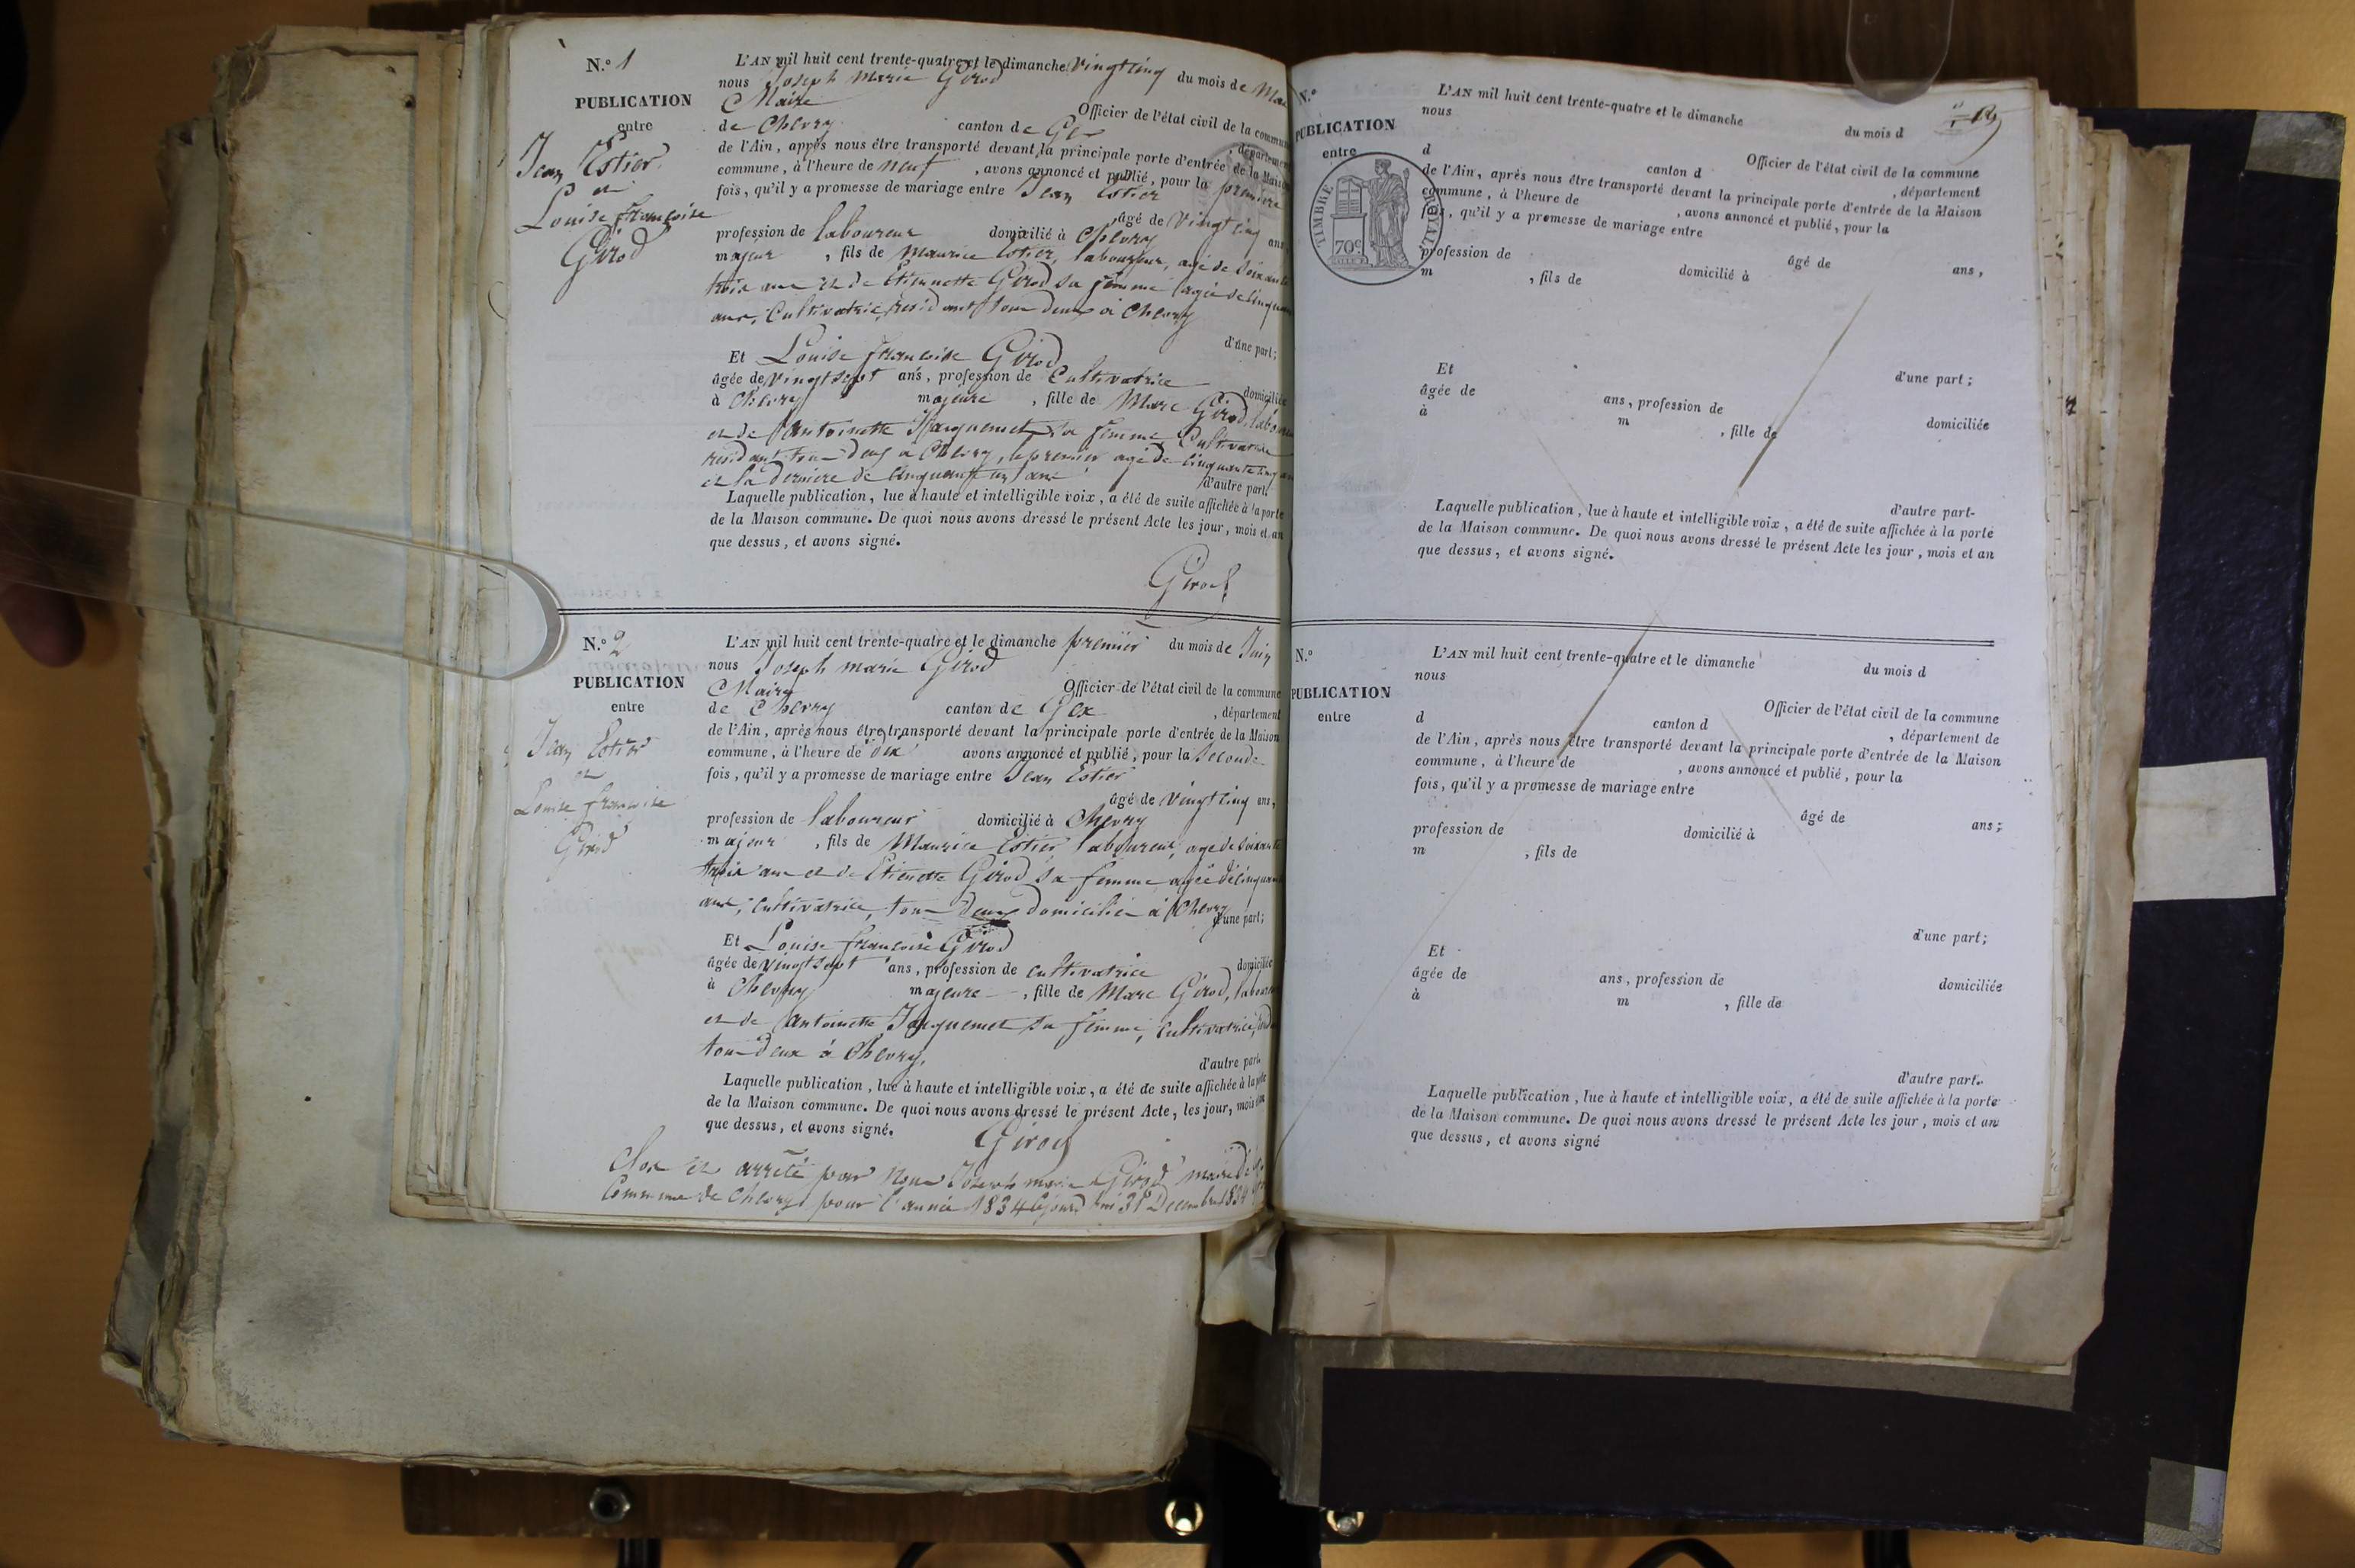 N.° 1
PUBLICATION
entre
Jean Estier
et
Louise françoise
Girod
L'AN mil huit cent trente-quatre et le dimanche vingt cinq du mois de Mai
nous Joseph Marie Girod
Maire Officier de l'état civil de la commune
de Chevry canton de Gex, département
de l'Ain, après nous être transporté devant la principale porte d'entrée de la Maison
commune, à l'heure de neuf, avons annoncé et publié, pour la première
fois, qu'il y a promesse de mariage entre Jean Estier
âgé de vingt cinq ans
profession de laboureur domicilié à Chevry
majeur, fils de Maurice Estier, laboureur, agé de soixante
trois ans et de Etiennette Girod sa femme agée de cinquante
ans, Cultivatrice, résidant tous deux à Chevry
d'une part;
Et Louise françoise Girod
âgée de vingt sept ans, profession de Cultivatrice domiciliée
à Chevry majeure, fille de Marc Girod, laboureur
et de Antoinette Jacquemet sa femme Cultivatrice
résidant tous deux a Chevry, le premier agé de cinquante cinq ans
et la derniere de cinquante un ans d'autre part.
Laquelle publication, lue à haute et intelligible voix, a été de suite affichée à la porte
de la Maison commune. De quoi nous avons dressé le présent Acte les jour, mois et an
que dessus, et avons signé.
Girod
N.° 2
PUBLICATION
entre
Jean Estier
et
Louise françoise
Girod
L'AN mil huit cent trente-quatre et le dimanche premier du mois de Juin
nous Joseph marie Girod
Maire Officier de l'état civil de la commune
de Chevry canton de Gex, département
de l'Ain, après nous être transporté devant la principale porte d'entrée de la Maison
commune, à l'heure de dix avons annoncé et publié, pour la seconde
fois, qu'il y a promesse de mariage entre Jean Estier
âgé de vingt cinq ans,
profession de laboureur domicilié à Chevry
majeur, fils de Maurice Estier laboureur, agé de soixante
trois ans et de Etienette Girod sa femme agée de cinquante
ans, cultivatrice, tous deux domiciliés à Chevry
d'une part;
Et Louise françoise Girod
âgée de vingt sept ans, profession de cultivatrice domiciliée
à Chevry majeure, fille de Marc Girod, laboureur
et de Antoinette Jacquemet sa femme, cultivatrice,
tous deux à Chevry,
d'autre part.
Laquelle publication, lue à haute et intelligible voix, a été de suite affichée à la porte
de la Maison commune. De quoi nous avons dressé le présent Acte, les jour, mois et an
que dessus, et avons signé.
Girod
Clos et arrêté par Nous Joseph marie Girod maire de
Commune de Chevry pour l'année 1834 ce jourd'hui 31 Decembre 1834
N.°
PUBLICATION
entre
TIMBRE ROYAL
70c
L'AN mil huit cent trente-quatre et le dimanche du mois d
nous
Officier de l'état civil de la commune
d canton d, département
de l'Ain, après nous être transporté devant la principale porte d'entrée de la Maison
commune, à l'heure de, avons annoncé et publié, pour la
fois, qu'il y a promesse de mariage entre
âgé de ans,
profession de domicilié à
m, fils de
d'une part;
Et
âgée de ans, profession de domiciliée
à m, fille de
d'autre part-
Laquelle publication, lue à haute et intelligible voix, a été de suite affichée à la porte
de la Maison commune. De quoi nous avons dressé le présent Acte les jour, mois et an
que dessus, et avons signé.
N.°
PUBLICATION
entre
L'AN mil huit cent trente-quatre et le dimanche du mois d
nous
Officier de l'état civil de la commune
d canton d, département de
de l'Ain, après nous être transporté devant la principale porte d'entrée de la Maison
commune, à l'heure de, avons annoncé et publié, pour la
fois, qu'il y a promesse de mariage entre
âgé de ans;
profession de domicilié à
m, fils de
d'une part;
Et
âgée de ans, profession de domiciliée
à m, fille de
d'autre part.
Laquelle publication, lue à haute et intelligible voix, a été de suite affichée à la porte
de la Maison commune. De quoi nous avons dressé le présent Acte les jour, mois et an
que dessus, et avons signé